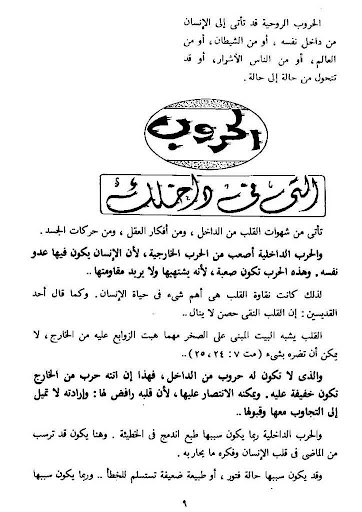 الحروب الروحية قد تأتى إلى الإنسان
من داخل نفسه ، أو من الشيطان ، أو من
العالم ، أو من الناس الأشرار ، أو قد
تتحول من حالة إلى حالة .
الحروب
التى فى داخلك
تأتى من شهوات القلب من الداخل ، ومن أفكار العقل ، ومن حركات الجسد .
والحرب الداخلية أصعب من الحرب الخارجية ، لأن الإنسان يكون فيها عدو
نفسه . وهذه الحرب تكون صعبة ، لأنه يشتهيها ولا يريد مقاومتها ..
لذلك كانت نقاوة القلب هى أهم شىء فى حياة الإنسان . وكما قال أحد
القديسين : إن القلب النقى حصن لا ينال ..
القلب يشبه البيت المبنى على الصخر مهما هبت الزوابع عليه من الخارج ، لا
يمكن أن تضره بشىء ( مت ٧ : ٢٤ ، ٢٥ ) ..
والذى لا تكون له حروب من الداخل ، فهذا إن اتته حرب من الخارج
تكون خفيفة عليه . ويمكنه الانتصار عليها ، لأن قلبه رافض لها : وإرادته لا تميل
إلى التجاوب معها وقبولها ..
والحرب الداخلية ربما يكون سببها طبع اندمج فى الخطيئة . وهنا يكون قد ترسب
من الماضى فى قلب الإنسان وفكره ما يحاربه .
وقد يكون سببها حالة فتور ، أو طبيعة ضعيفة تستسلم للخطأ .. وربما يكون سببها
٩